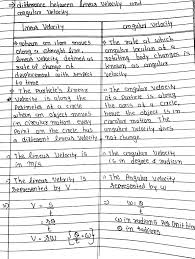 ⇒ difference between linear velocity and
angular velocity.
linear velocity
angular velocity
⇒ when an item moves
along a straight line,
linear velocity defined as
rate of change of
displacement with respect
to time
⇒ The rate at which
angular rotation of a
rotating body changes is
known as angular
velocity
⇒ The Particle's linear
velocity is along the
Perimeter of a circle
when an object moves
in circular motion every
Point on the circle has
a different linear velocity
⇒ The angular velocity
of a particle is along
the axis of a circle,
hence the object is in
circular motion. The
angular velocity does
not change
⇒ The linear velocity is
in m/s
⇒ The angular velocity
is in degree & radian
⇒ The linear velocity is
represented by V
⇒ The Angular velocity
represented by ω